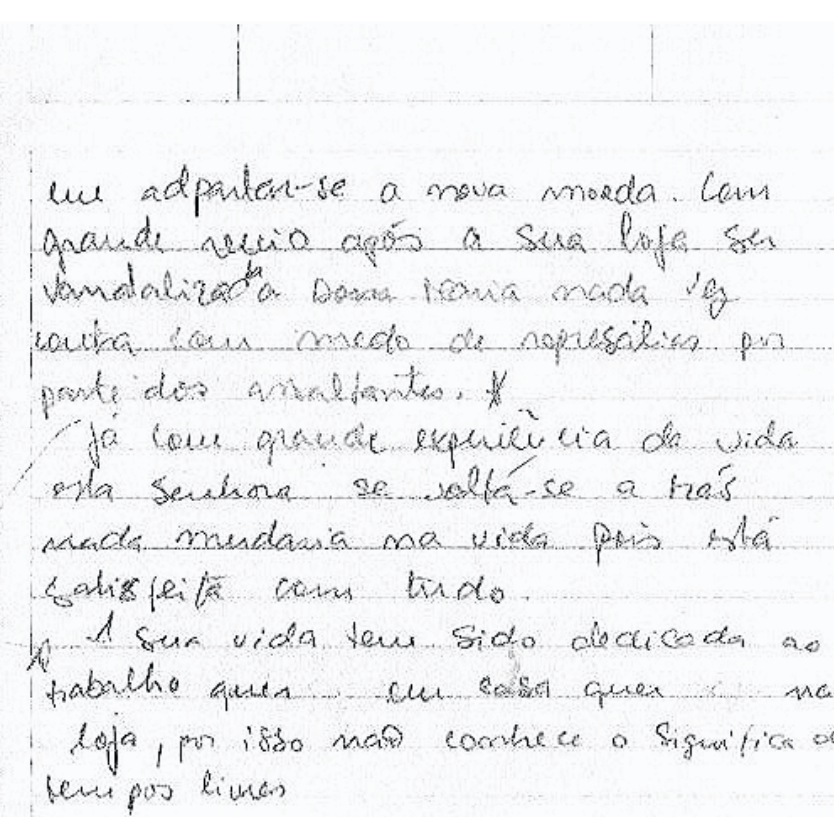 em adpantar-se a nova moeda. Com
grande receio após a sua loja ser
vandalizada Dona Maria nada fez
contra com medo de represálias por
parte dos assaltantes.
Já com grande experiência da vida
esta senhora se voltá-se a trás
nada mudaria na vida pois está
satisfeita com tudo.
A sua vida tem sido dedicada ao
trabalho quer em casa quer na
loja, por isso não conhece o significa
tempos livres